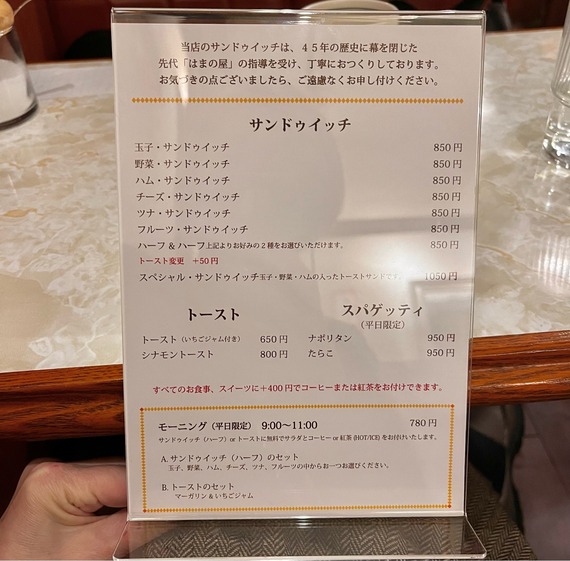 当店のサンドゥイッチは、４５年の歴史に幕を閉じた
先代「はまの屋」の指導を受け、丁寧におつくりしております。
お気づきの点ございましたら、ご遠慮なくお申し付けください。
サンドゥイッチ
玉子・サンドゥイッチ 850円
野菜・サンドゥイッチ 850円
ハム・サンドゥイッチ 850円
チーズ・サンドゥイッチ 850円
ツナ・サンドゥイッチ 850円
フルーツ・サンドゥイッチ 850円
ハーフ & ハーフ 上記よりお好みの２種をお選びいただけます。 850円
トースト変更 +50円
スペシャル・サンドゥイッチ 玉子・野菜・ハムの入ったトーストサンドです。 1050円
トースト
トースト（いちごジャム付き） 650円
シナモントースト 800円
スパゲッティ
（平日限定）
ナポリタン 950円
たらこ 950円
すべてのお食事、スイーツに+400円でコーヒーまたは紅茶をお付けできます。
モーニング（平日限定） 9:00〜11:00 780円
サンドゥイッチ（ハーフ）or トーストに無料でサラダとコーヒー or 紅茶 (HOT/ICE) をお付けいたします。
A. サンドゥイッチ（ハーフ）のセット
玉子、野菜、ハム、チーズ、ツナ、フルーツの中からお一つお選びください。
B. トーストのセット
マーガリン & いちごジャム